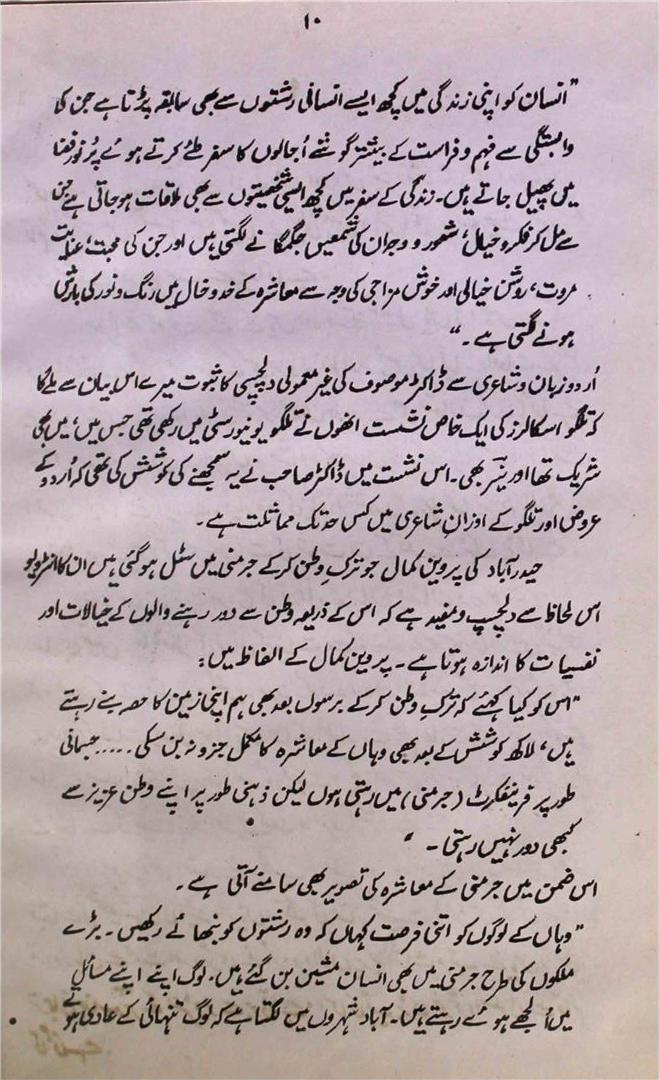 ۱۰
"انسان کو اپنی زندگی میں کچھ ایسے انسانی رشتوں سے بھی سابقہ پڑتا ہے جن کی
وابستگی سے فہم و فراست کے بیشتر گوشے اُجالوں کا سفر طئے کرتے ہوئے پُر نور فضا
میں پھیل جاتے ہیں۔ زندگی کے سفر میں کچھ ایسی شخصیتوں سے بھی ملاقات ہو جاتی ہے جن
سے مل کر فکر و خیال، شعور و وجدان کی شمعیں جگمگانے لگتی ہیں اور جن کی محبت، عنایت
مروت، روشن خیالی اور خوش مزاجی کی وجہ سے معاشرہ کے خدوخال میں رنگ و نور کی بارش
ہونے لگتی ہے۔"
اُردو زبان و شاعری سے ڈاکٹر موصوف کی غیر معمولی دلچسپی کا ثبوت میرے اس بیان سے ملے گا
کہ تلگو اسکالرز کی ایک خاص نشست انھوں نے تلگو یونیورسٹی میں رکھی تھی جس میں، میں بھی
شریک تھا اور نیّر بھی۔ اس نشست میں ڈاکٹر صاحب نے یہ سمجھنے کی کوشش کی تھی کہ اُردو کے
عروض اور تلگو کے اوزانِ شاعری میں کس حد تک مماثلت ہے۔
حیدرآباد کی پروین کمال جو ترکِ وطن کر کے جرمنی میں سٹل ہو گئی ہیں ان کا انٹرویو
اس لحاظ سے دلچسپ و مفید ہے کہ اس کے ذریعہ وطن سے دور رہنے والوں کے خیالات اور
نفسیات کا اندازہ ہوتا ہے۔ پروین کمال کے الفاظ میں:
"اس کو کیا کہئے کہ ترکِ وطن کر کے برسوں بعد بھی ہم اپنی زمین کا حصہ بنے رہتے
ہیں، لاکھ کوشش کے بعد بھی وہاں کے معاشرہ کا مکمل جزو نہ بن سکی ..... جسمانی
طور پر فرینکفرٹ (جرمنی) میں رہتی ہوں لیکن ذہنی طور پر اپنے وطن عزیز سے
کبھی دور نہیں رہتی۔"
اس ضمن میں جرمنی کے معاشرہ کی تصویر بھی سامنے آتی ہے۔
"وہاں کے لوگوں کو اتنی فرصت کہاں کہ وہ رشتوں کو نبھائے رکھیں۔ بڑے
ملکوں کی طرح جرمنی میں بھی انسان مشین بن گئے ہیں۔ لوگ اپنے اپنے مسائل
میں اُلجھے ہوئے رہتے ہیں۔ آباد شہروں میں لگتا ہے کہ لوگ تنہائی کے عادی ہوئے